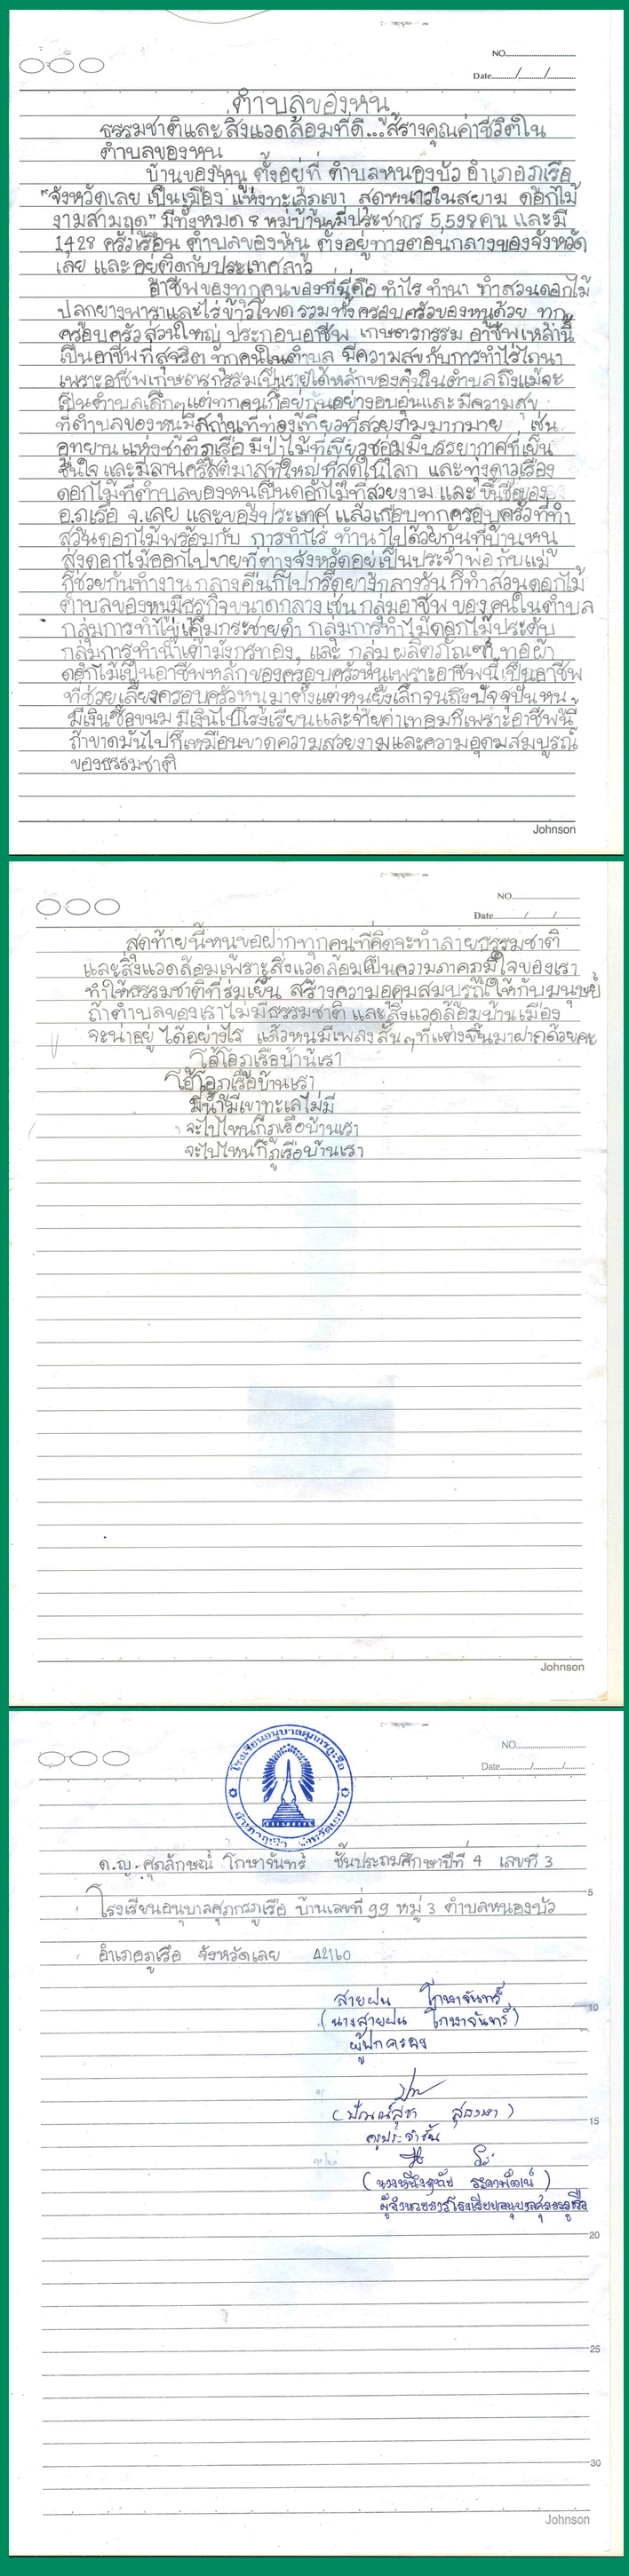 NO.
Date / /
ตำบลของหนู
ธรรมชาติและ สิ่งแวดล้อมที่ดี...สร้างคุณค่าชีวิตใน
ตำบลของหนู
บ้านของหนู ตั้งอยู่ที่ ตำบลหนองบัว อำเภอภูเรือ
"จังหวัดเลย เป็นเมือง แห่งทะเลภูเขา สุดหนาวในสยาม ดอกไม้
งามสามฤดู" มีทั้งหมด 8 หมู่บ้าน มีประชากร 5,598 คน และมี
1,428 ครัวเรือน ตำบลของหนู ตั้งอยู่ทางตอนกลางของจังหวัด
เลย และ อยู่ติดกับประเทศลาว
อาชีพของทุกคนของที่นี่คือ ทำไร่ ทำนา ทำสวนดอกไม้
ปลูกยางพาราและไร่ข้าวโพด รวมทั้งครอบครัวของหนูด้วย ทุก
ครอบครัวส่วนใหญ่ ประกอบอาชีพ เกษตรกรรม อาชีพเหล่านี้
เป็นอาชีพที่สุจริต ทุกคนในตำบล มีความสุข กับการทำไร่ไถนา
เพราะอาชีพเกษตรกรรมเป็นรายได้หลักของคนในตำบล ถึงแม้จะ
เป็นตำบลเล็กๆแต่ทุกคนก็อยู่กันอย่างอบอุ่นและ มีความสุข
ที่ตำบลของหนูมีสถานที่ท่องเที่ยวที่สวยงามมากมาย เช่น
อุทยานแห่งชาติภูเรือ มีป่าไม้ที่เขียวชอุ่มมีบรรยากาศที่เย็น
ชื่นใจ และมีลานคริสต์มาสที่ใหญ่ที่สุดในโลก และทุ่งดาวเรือง
ดอกไม้ที่ตำบลของหนูเป็นดอกไม้ที่สวยงาม และ ขึ้นชื่อของ
อ.ภูเรือ จ.เลย และของประเทศ แล้วเกือบทุกครอบครัวที่ทำ
สวนดอกไม้พร้อมกับ การทำไร่ ทำนาไปด้วยกันที่บ้านหนู
ส่งดอกไม้ออกไปขายที่ต่างจังหวัดอยู่เป็นประจำพ่อ กับแม่
ก็ช่วยกันทำงาน กลางคืนก็ไปกรีดยางกลางวัน ก็ทำสวนดอกไม้
ตำบลของหนูมีธุรกิจขนาดกลางเช่น กลุ่มอาชีพ ของคนในตำบล
กลุ่มการทำไข่เค็มกระชายดำ กลุ่มการทำไม้ดอกไม้ประดับ
กลุ่มการทำน้ำเต้ามังกรทอง, และ กลุ่ม ผลิตภัณฑ์ ทอผ้า
ดอกไม้เป็นอาชีพหลักของครอบครัวหนูเพราะอาชีพนี้ เป็นอาชีพ
ที่ช่วยเลี้ยงครอบครัวหนูมาตั้งแต่หนูยังเล็กจนถึงปัจจุบันหนู
มีเงินซื้อขนม มีเงินไปโรงเรียนและจ่ายค่าเทอมก็เพราะอาชีพนี้
ถ้าขาดมันไปก็เหมือนขาดความสวยงามและความอุดมสมบูรณ์
ของธรรมชาติ
Johnson
NO.
Date / /
สุดท้ายนี้หนูขอฝากทุกคนที่คิดจะทำลายธรรมชาติ
และสิ่งแวดล้อมเพราะสิ่งแวดล้อมเป็นความภาคภูมิใจของเรา
ทำให้ธรรมชาติที่ร่มเย็น สร้างความอุดมสมบูรณ์ให้กับมนุษย์
ถ้าตำบลของเราไม่มีธรรมชาติ และสิ่งแวดล้อมบ้านเมือง
จะน่าอยู่ ได้อย่างไร แล้วหนูมีเพลงสั้นๆที่แต่งขึ้นมาฝากด้วยคะ
โอ้โอภูเรือบ้านเรา
โอ้โอภูเรือบ้านเรา
มีน้ำมีเขาทะเลไม่มี
จะไปไหนก็ภูเรือบ้านเรา
จะไปไหนก็ภูเรือบ้านเรา
Johnson
โรงเรียนอนุบาลศุภกรภูเรือ
อำเภอภูเรือ จังหวัดเลย
NO.
Date / /
ด.ญ.ศุภลักษณ์ โกษาจันทร์ ชั้นประถมศึกษาปีที่ 4 เลขที่ 3
โรงเรียนอนุบาลศุภกรภูเรือ บ้านเลขที่ 99 หมู่ 3 ตำบลหนองบัว
5
อำเภอภูเรือ จังหวัดเลย 42160
สายฝน โกษาจันทร์
10
(นางสายฝน โกษาจันทร์)
ผู้ปกครอง
15
ครูประจำชั้น
ผู้อำนวยการโรงเรียนอนุบาลศุภกรภูเรือ
20
25
30
Johnson